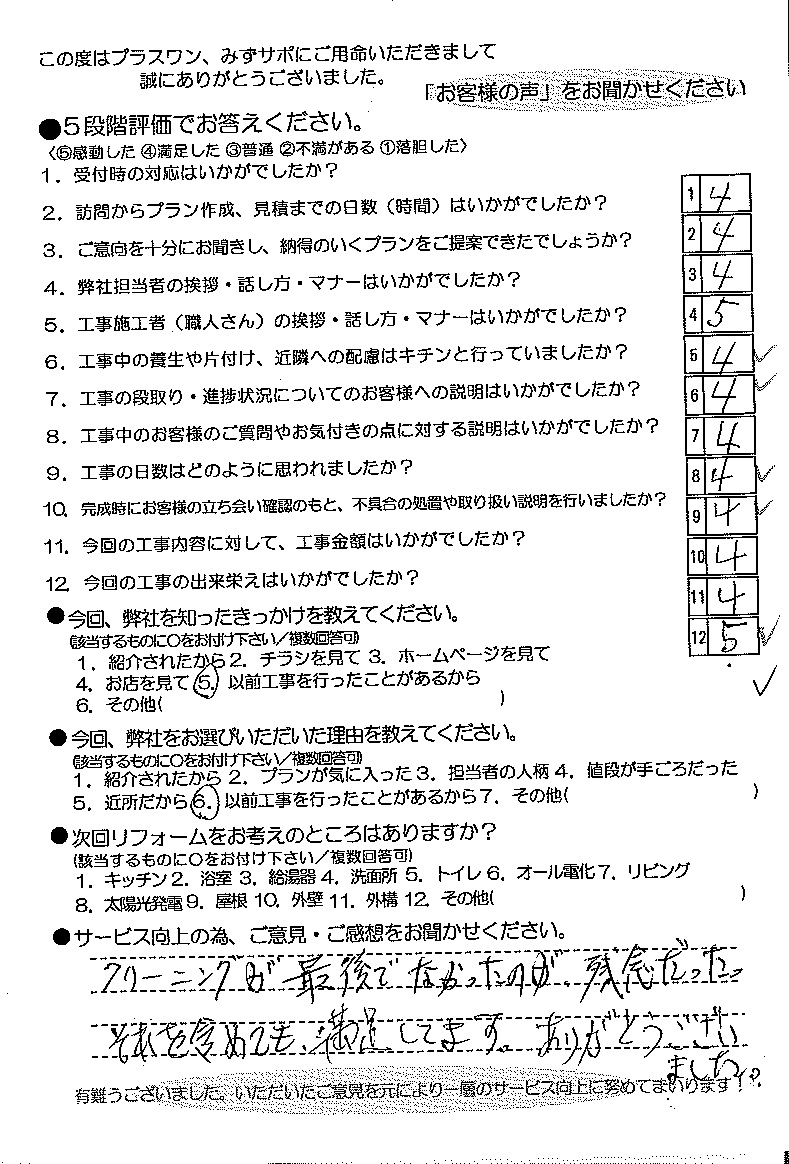 この度はプラスワン、みずサポにご用命いただきまして
誠にありがとうございました。
「お客様の声」をお聞かせください
●5段階評価でお答えください。
〈⑤感動した ④満足した ③普通 ②不満がある ①落胆した〉
1. 受付時の対応はいかがでしたか？
2. 訪問からプラン作成、見積までの日数（時間）はいかがでしたか？
3. ご意向を十分にお聞きし、納得のいくプランをご提案できたでしょうか？
4. 弊社担当者の挨拶・話し方・マナーはいかがでしたか？
5. 工事施工者（職人さん）の挨拶・話し方・マナーはいかがでしたか？
6. 工事中の養生や片付け、近隣への配慮はキチンと行っていましたか？
7. 工事の段取り・進捗状況についてのお客様への説明はいかがでしたか？
8. 工事中のお客様のご質問やお気付きの点に対する説明はいかがでしたか？
9. 工事の日数はどのように思われましたか？
10. 完成時にお客様の立ち会い確認のもと、不具合の処置や取り扱い説明を行いましたか？
11. 今回の工事内容に対して、工事金額はいかがでしたか？
12. 今回の工事の出来栄えはいかがでしたか？
1 4
2 4
3 4
4 5
5 4 ✓
6 4 ✓
7 4
8 4 ✓
9 4 ✓
10 4
11 4
12 5 ✓
✓
●今回、弊社を知ったきっかけを教えてください。
(該当するものに○をお付け下さい／複数回答可)
1. 紹介されたから 2. チラシを見て 3. ホームページを見て
4. お店を見て 5. 以前工事を行ったことがあるから
6. その他( )
●今回、弊社をお選びいただいた理由を教えてください。
(該当するものに○をお付け下さい／複数回答可)
1. 紹介されたから 2. プランが気に入った 3. 担当者の人柄 4. 値段が手ごろだった
5. 近所だから 6. 以前工事を行ったことがあるから 7. その他( )
●次回リフォームをお考えのところはありますか？
(該当するものに○をお付け下さい／複数回答可)
1. キッチン 2. 浴室 3. 給湯器 4. 洗面所 5. トイレ 6. オール電化 7. リビング
8. 太陽光発電 9. 屋根 10. 外壁 11. 外構 12. その他( )
●サービス向上の為、ご意見・ご感想をお聞かせください。
クリーニングが最後でなかったのが、残念だった
それを含めても、満足してます。ありがとうござい
ました。
有難うございました。いただいたご意見を元により一層のサービス向上に努めてまいります！